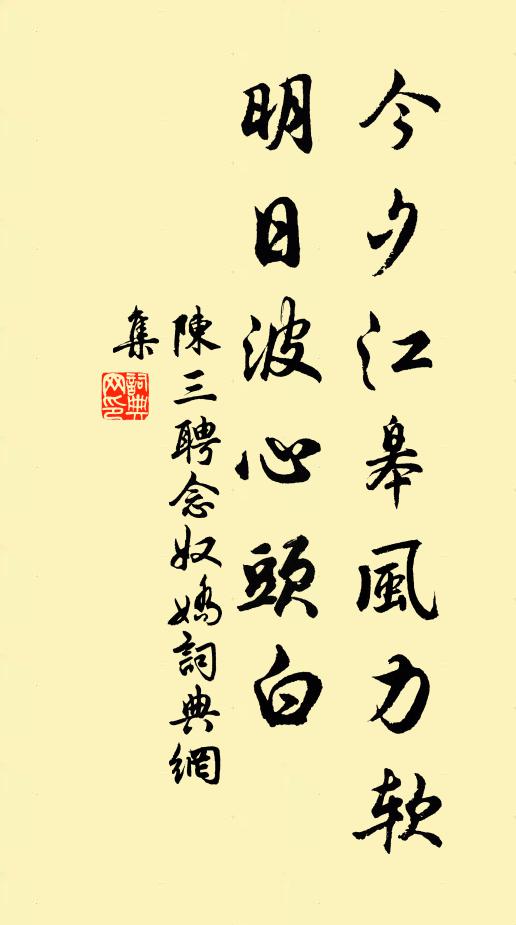 今夕江皋風力軟
明日波心頭白
陳三聘念奴嬌詞典網
集
詞典网印